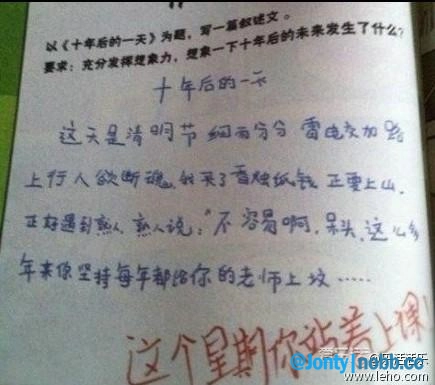 以《十年后的一天》为题，写一篇叙述文。
要求：充分发挥想象力，想象一下十年后的未来发生了什么？
十年后的一天
这天是清明节 细雨分分 雷电交加 路
上行人欲断魂，我买了香烛纸钱 正要上山，
正好遇到熟人，熟人说："不容易啊，呆头，这么多
年来你坚持每年都给你的老师上坟……
这个星期你站着上课！
@Jonty|nobb.cc
www.leho.com